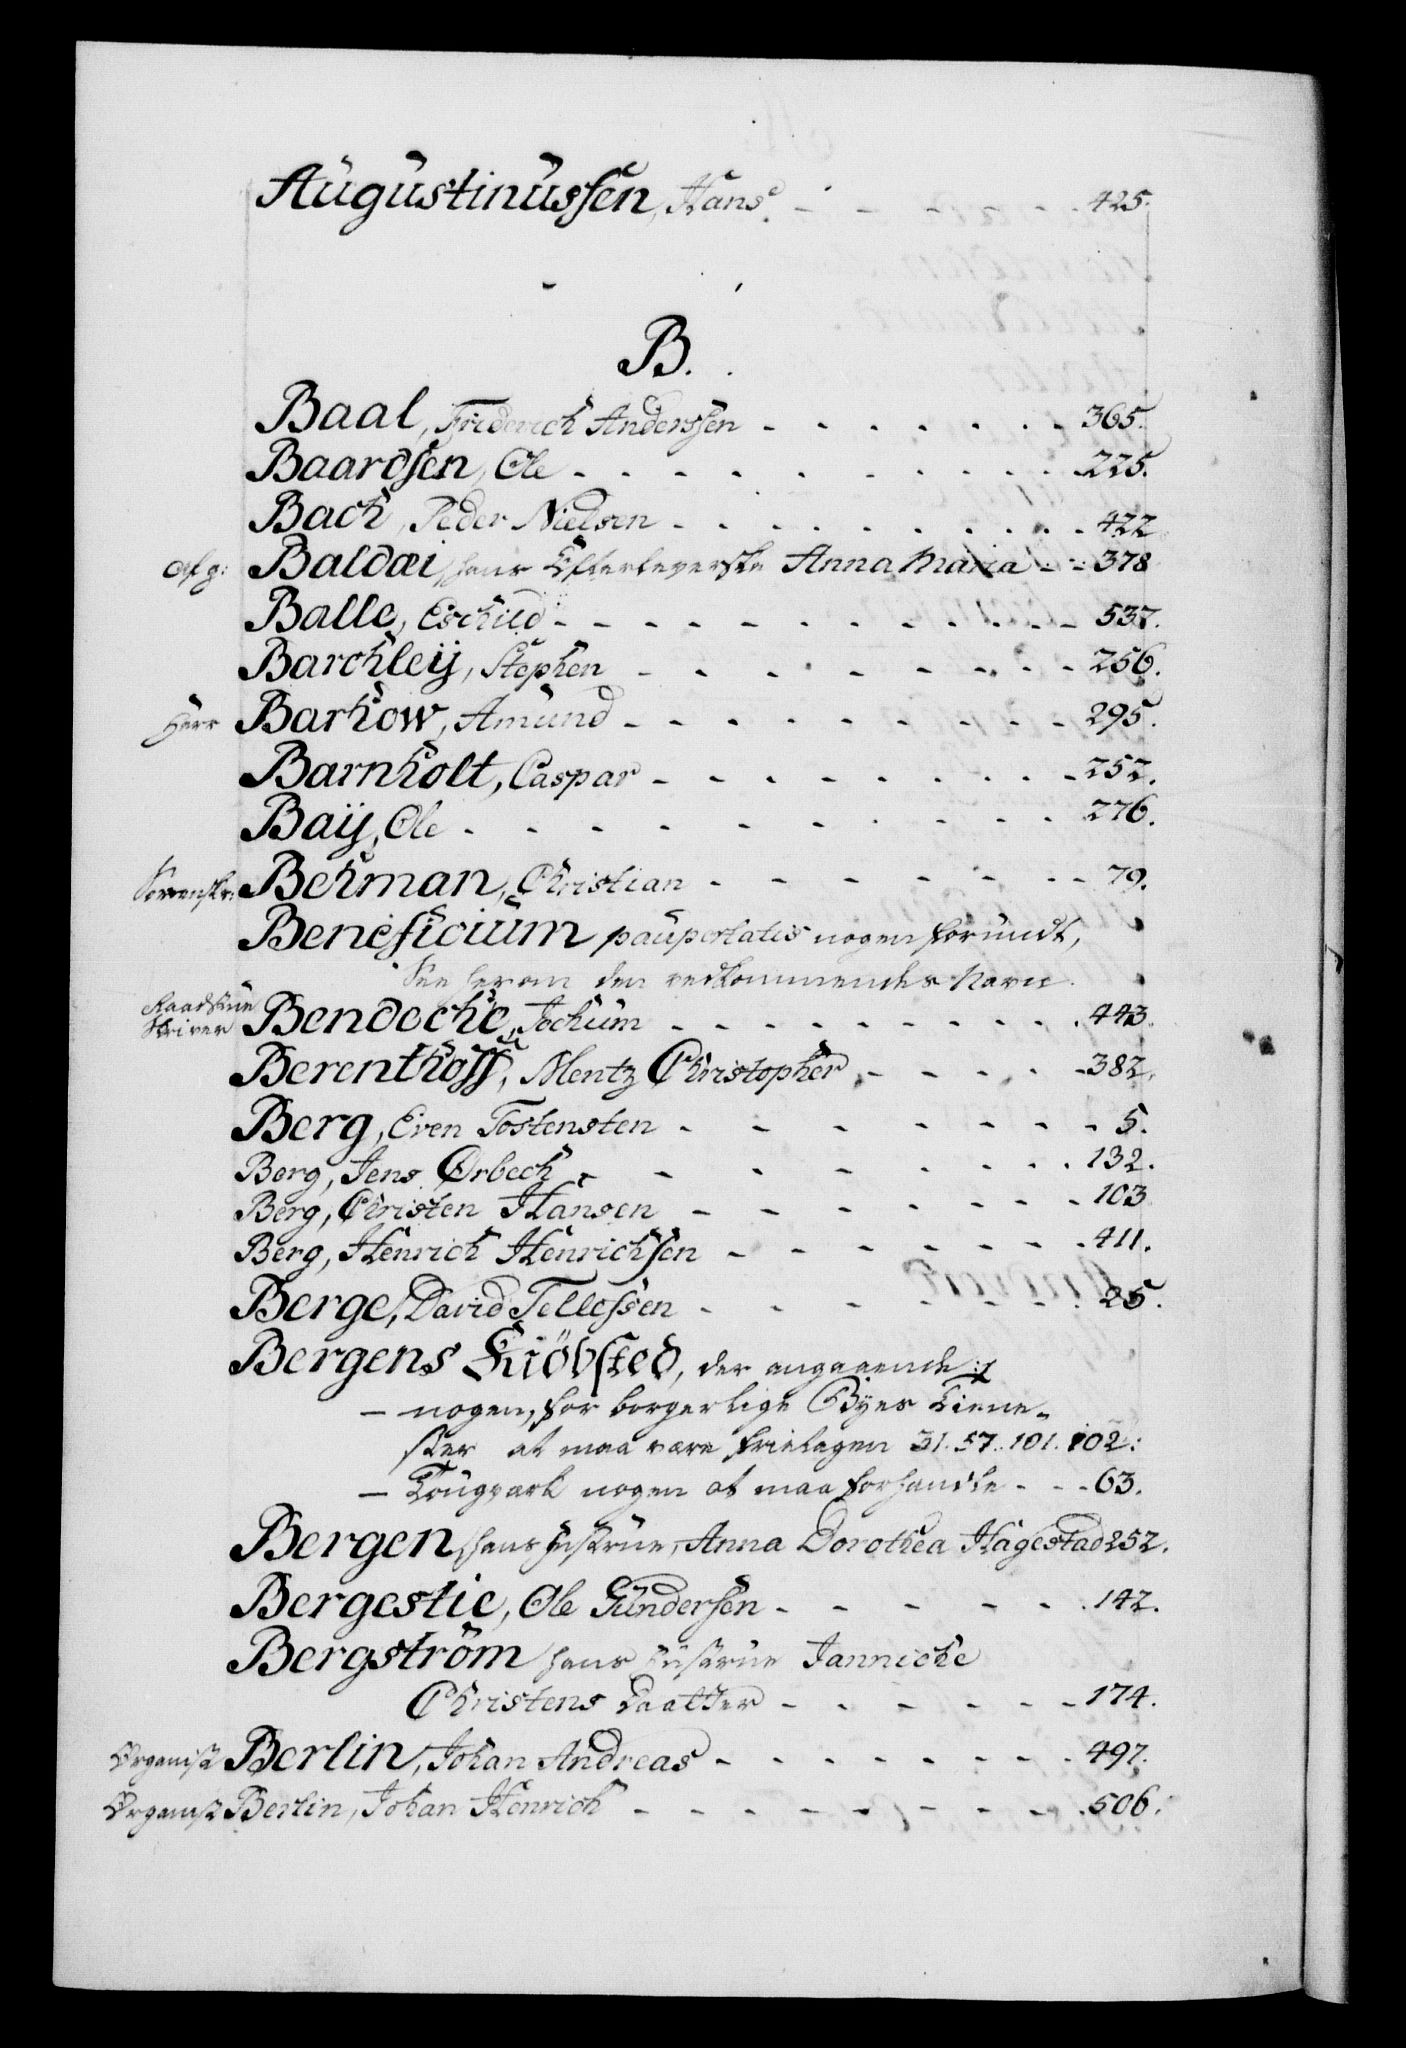 Augustinussen, Hans. - - - - 425.
B.
Baal, Friderich Anderssen - - - - - - - 365.
Baardsen, Ole - - - - - - - - - - 225.
Bach, Peder Nielsen - - - - - - - - 422
Afg: Baldæi hans Efterleverske Anna Maria - - 378
Balle, Eschild - - - - - - - - - - 537.
Barchleÿ, Stephen - - - - - - - - 256.
Herr Barhow, Amund - - - - - - - - - 295.
Barnholt, Caspar - - - - - - - - - 252.
Baÿ, Ole - - - - - - - - - - 276.
Sorenskr: Behman, Christian - - - - - - - 79.
Beneficium paupertatis nogen forundt,
See herom den vedkommendes Navn.
Raadstue
Skriver Bendeche, Jochum - - - - - - - - - 443.
Berenthoff, Mentz Christopher - - - - - 382.
Berg, Even Tostensten - - - - - - - 5.
Berg, Jens Ørbech - - - - - - - - 132.
Berg, Christen Hansen - - - - - - - 103
Berg, Henrich Henrichsen - - - - - - - 411.
Berge, David Tellessen - - - - - - - 25.
Bergens Kiöbsted, der angaaende
- nogen, for borgerlige Byes Tiene-
ster at maa være frietagen 31. 57. 101. 102.
- Tougverk nogen at maa forhandle - - - 63.
Bergen hans Hustrue, Anna Dorothea Hagestad 252.
Bergestie, Ole Gundersen - - - - - - 142.
Bergström hans Hustrue Jannicke
Christens Daatter - - - - - - 174.
Organist Berlin, Johan Andreas - - - - - - - - 497.
Organist Berlin, Johan Henrich - - - - - - - - 506.